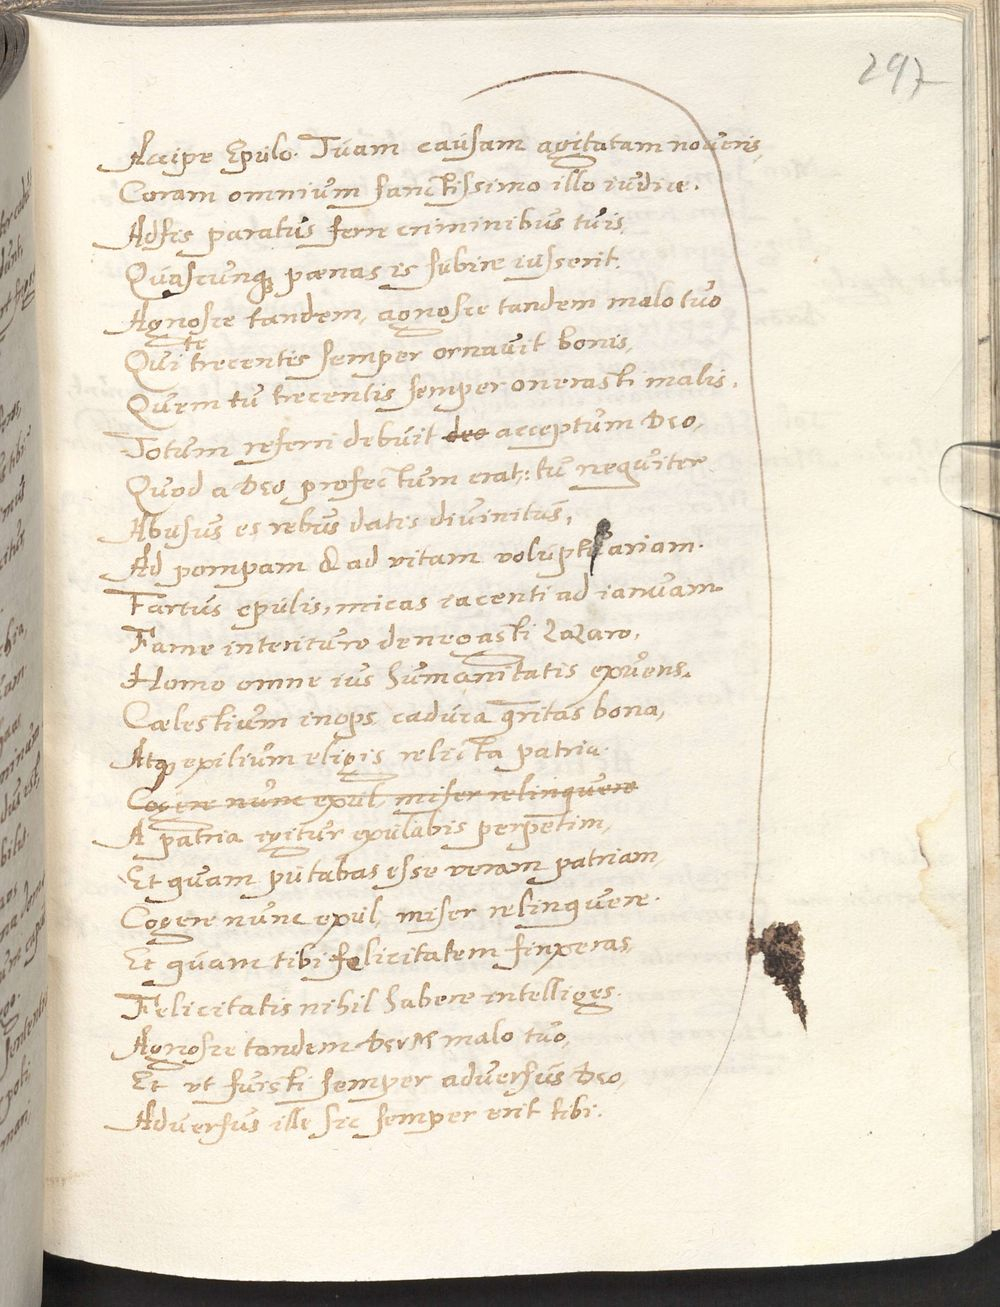 297
Accipe Epulo. Tuam causam agitatam noveris,
Coram omnium sanctissimo illo iudice.
Adsis paratus ferre criminibus tuis,
Quascunq; pœnas is subire iusserit.
Agnosce tandem, agnosce tandem malo tuo
Qui te trecentis semper ornavit bonis,
Quem tu trecentis semper onerasti malis.
Totum referri debuit deo acceptum Deo,
Quod a Deo profectum erat: tu nequiter
Abusus es rebus datis divinitus,
Ad pompam & ad vitam voluptuariam.
Fartus epulis, micas iacenti ad ianuam
Fame interituro denegasti Lazaro,
Homo omne ius humanitatis exuens.
Cælestium inops caduca quæritas bona,
Atq; exilium eligis relicta patria.
Cogere nunc exul, miser relinquere
A patria igitur exulabis perpetim,
Et quam putabas esse veram patriam
Cogere nunc exul, miser relinquere.
Et quam tibi felicitatem finxeras
Felicitatis nihil habere intelliges.
Agnosce tandem Deum malo tuo,
Et ut fuisti semper adversus Deo,
Adversus ille sic semper erit tibi.